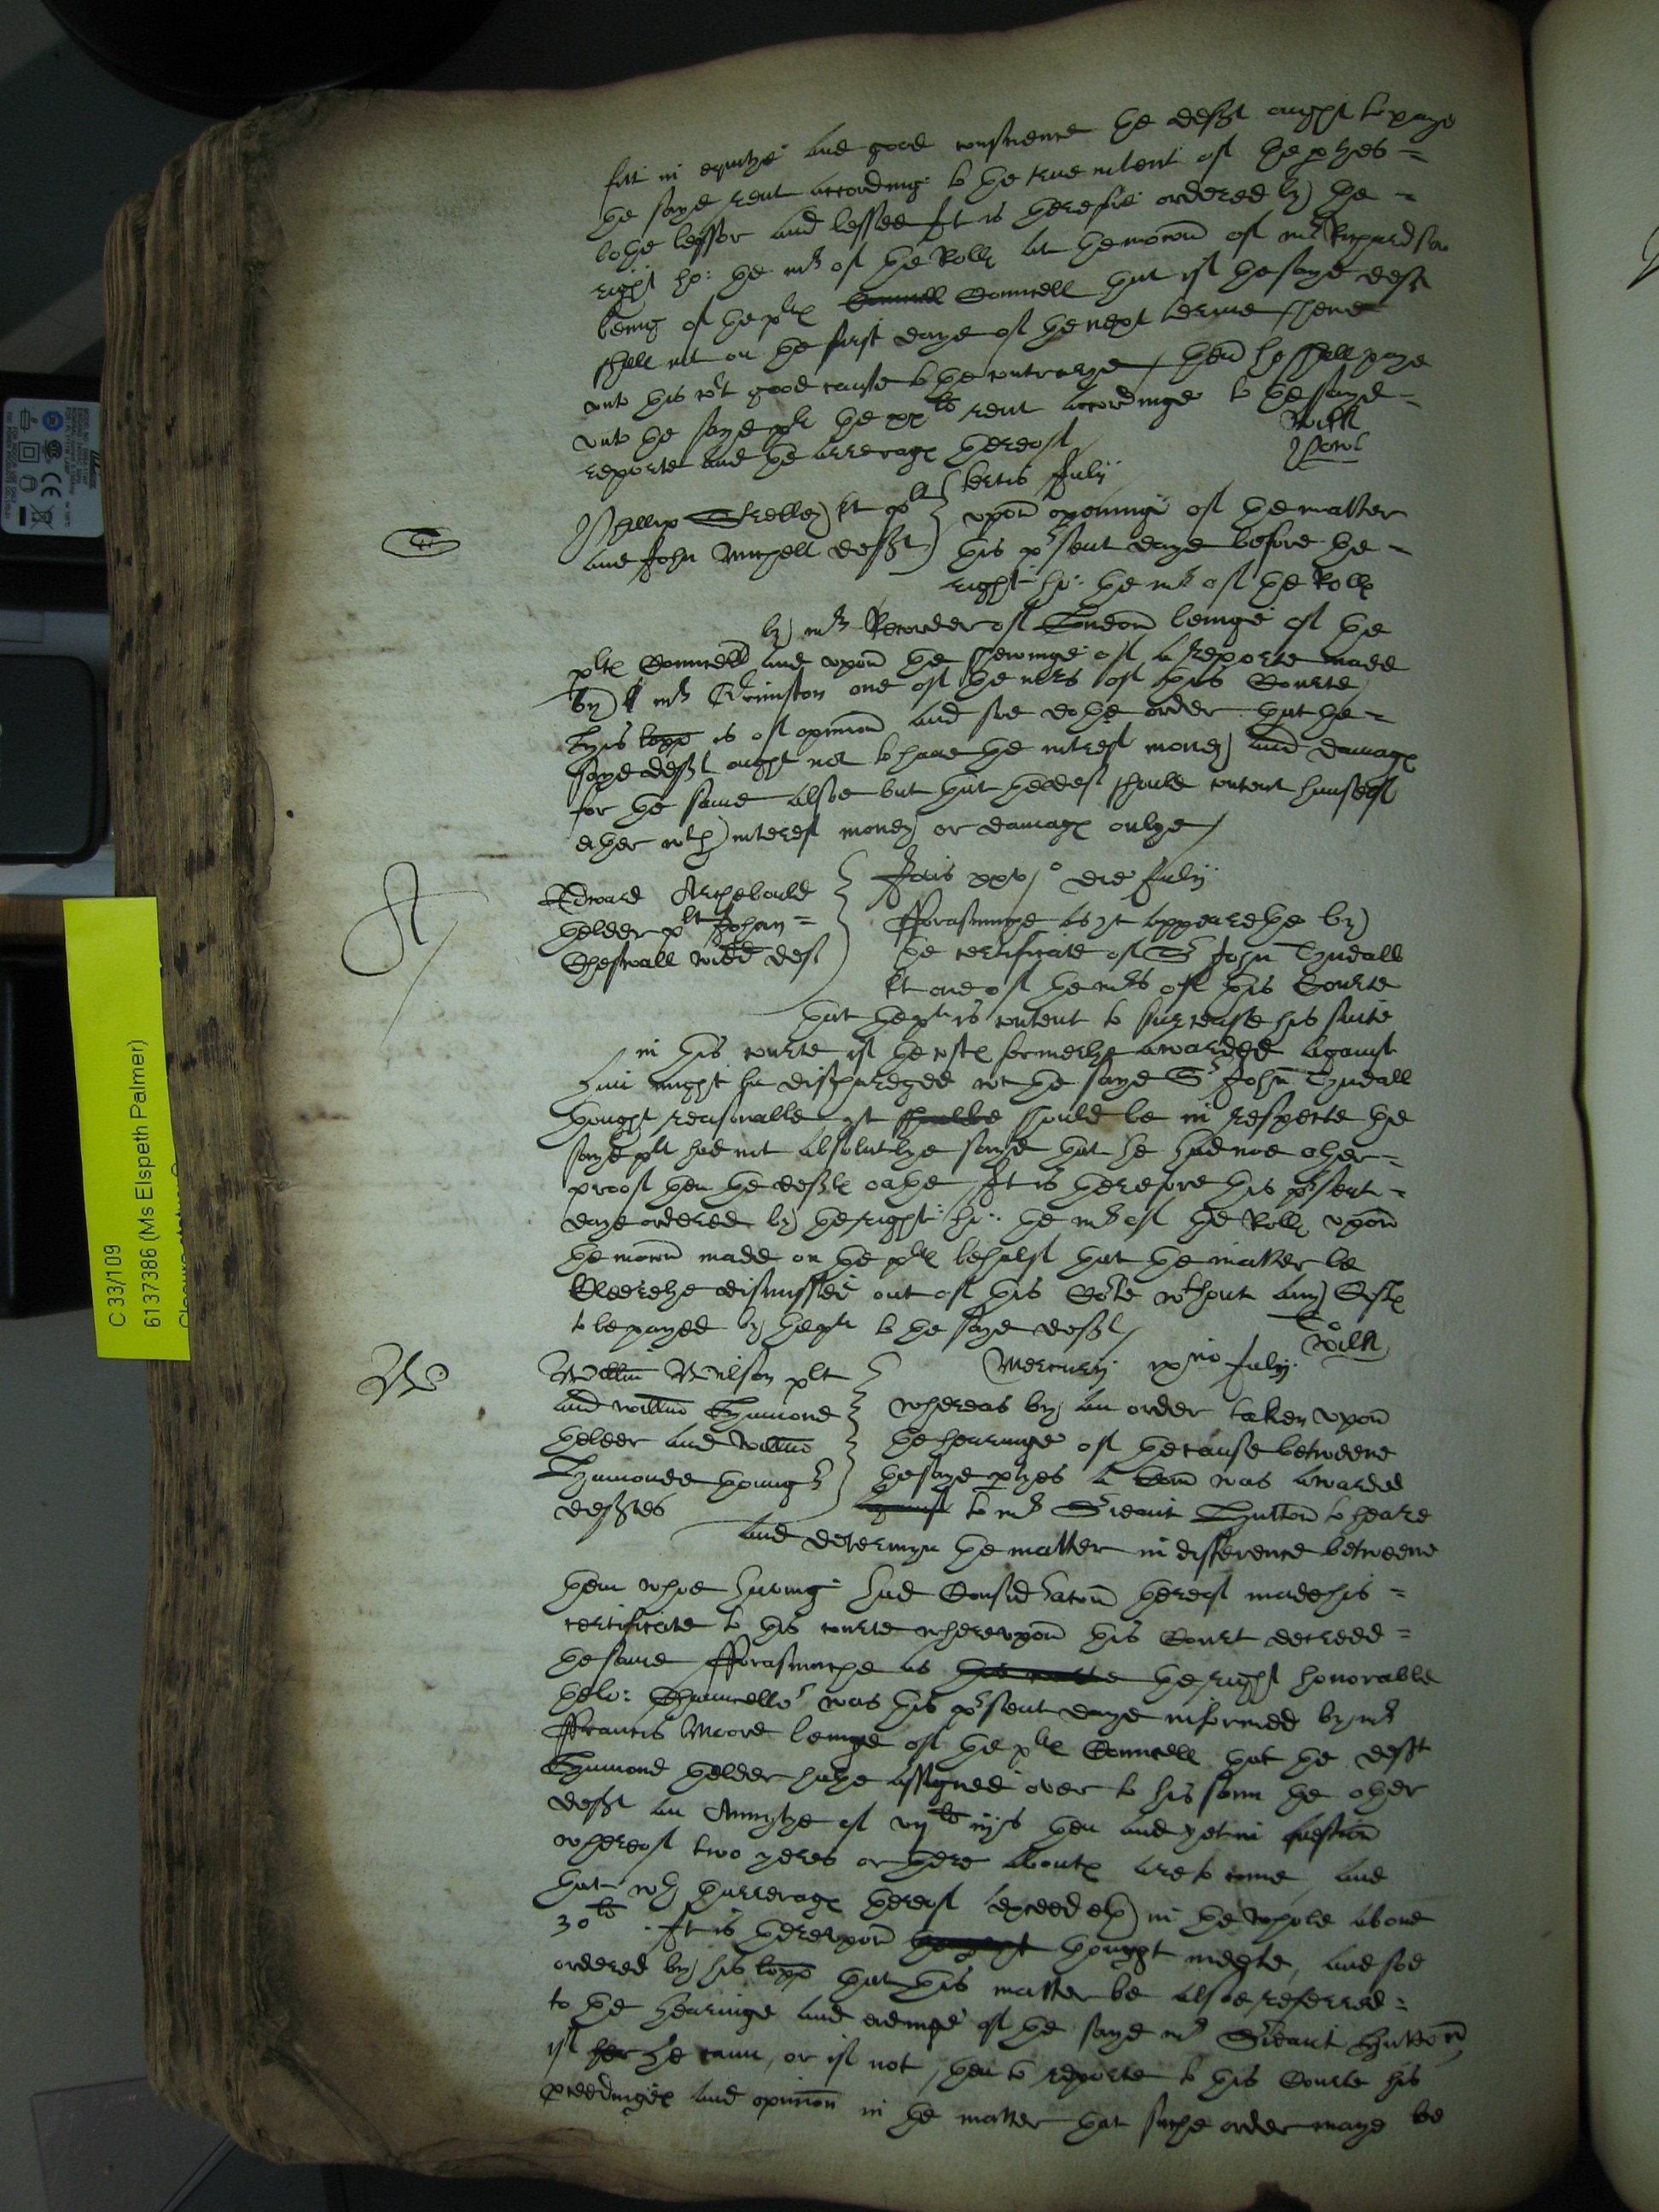 that in equitye and good conscience the defft ought to paye
the sayd rent according to the true intent of the ptyes =
to the lessor and lessee It is therefore ordered by the =
right ho: the mr of the Rolls at the mocon of mr Richardson
being of the plts Councell that if the sayd defft
shall not on the first daye of the next terme shewe
unto this cort good cause to the contrarye / then he shall paye
unto the sayd plt the rent accordinge to the sayd =
reporte and the arrerages thereof /
Phillip kt plt
and John Michell defft
July
upon openinge of the matter
this psent daye before the =
right ho: the mr of the Rolls
by mr Recorder of London beinge of the
plts Councell and upon the shewinge of a reporte made
by mr Grimston one of the mrs of this Courte
is of opinion and soe doth order that the =
sayd defft ought not to have the intrest money and damages
for the same alsoe but that the deft should content himself
ether wth interest money or damages onlye /
Edward Archebould
thelder plt Johan =
Cheswall widd deft
Jovis xxvjo die July
Fforasmuche as yt appearethe by
the certificate of Sr John Tyndall
kt one of the mrs of this Courte
that the plt is content to surcease his suite
in this courte if the costs formerlye awarded against
him might be dischardged wch the sayd Sr John Tyndall
thought reasonable yt should be in respecte the
sayd plt had not absolutlye sayd that he had noe other =
proof then the deffts oathe / It is therefore this psent =
daye ordered by the right ho: the mr of the Rolls upon
the mocon made on the plts behalf that the matter be
cleerelye dismissed out of this Corte wthout any Costs
to be payed by the plt to the sayd defft /
Willm Wilson plt
and willm Hamond
thelder and willm
Hamonde youngr
defftes
Mercurij July
whereas by an order taken upon
the hearinge of the cause betweene
the sayd ptyes a Comn was awarded
to mr Sieant Hutton to heare
and determyn the matter in difference betweene
them whoe having had Consideracon thereof made his =
certificate to this courte whereupon this Court decreed =
the same Fforasmuche as the right honorable
the lo: Chauncellor was this psent daye informed by mr
Ffrancis Moore beinge of the plts Councell that the defft
Hamond thelder hathe assigned over to his sonn the other
defft an Annuytye of then and yet in question
whereof two yeres or there abouts are to come and
that wth tharrerages thereof exceedeth in the whole above
30li. It is thereupon thought meete, and soe
ordered by his lopp that this matter be alsoe referred =
to the hearinge and endinge of the sayd mr Sieant Hutton
if he cann, or if not, then to reporte to this Courte his
pceedinges and opinion in the matter that suche order maye be
C 33/109
6137386 (Ms Elspeth Palmer)